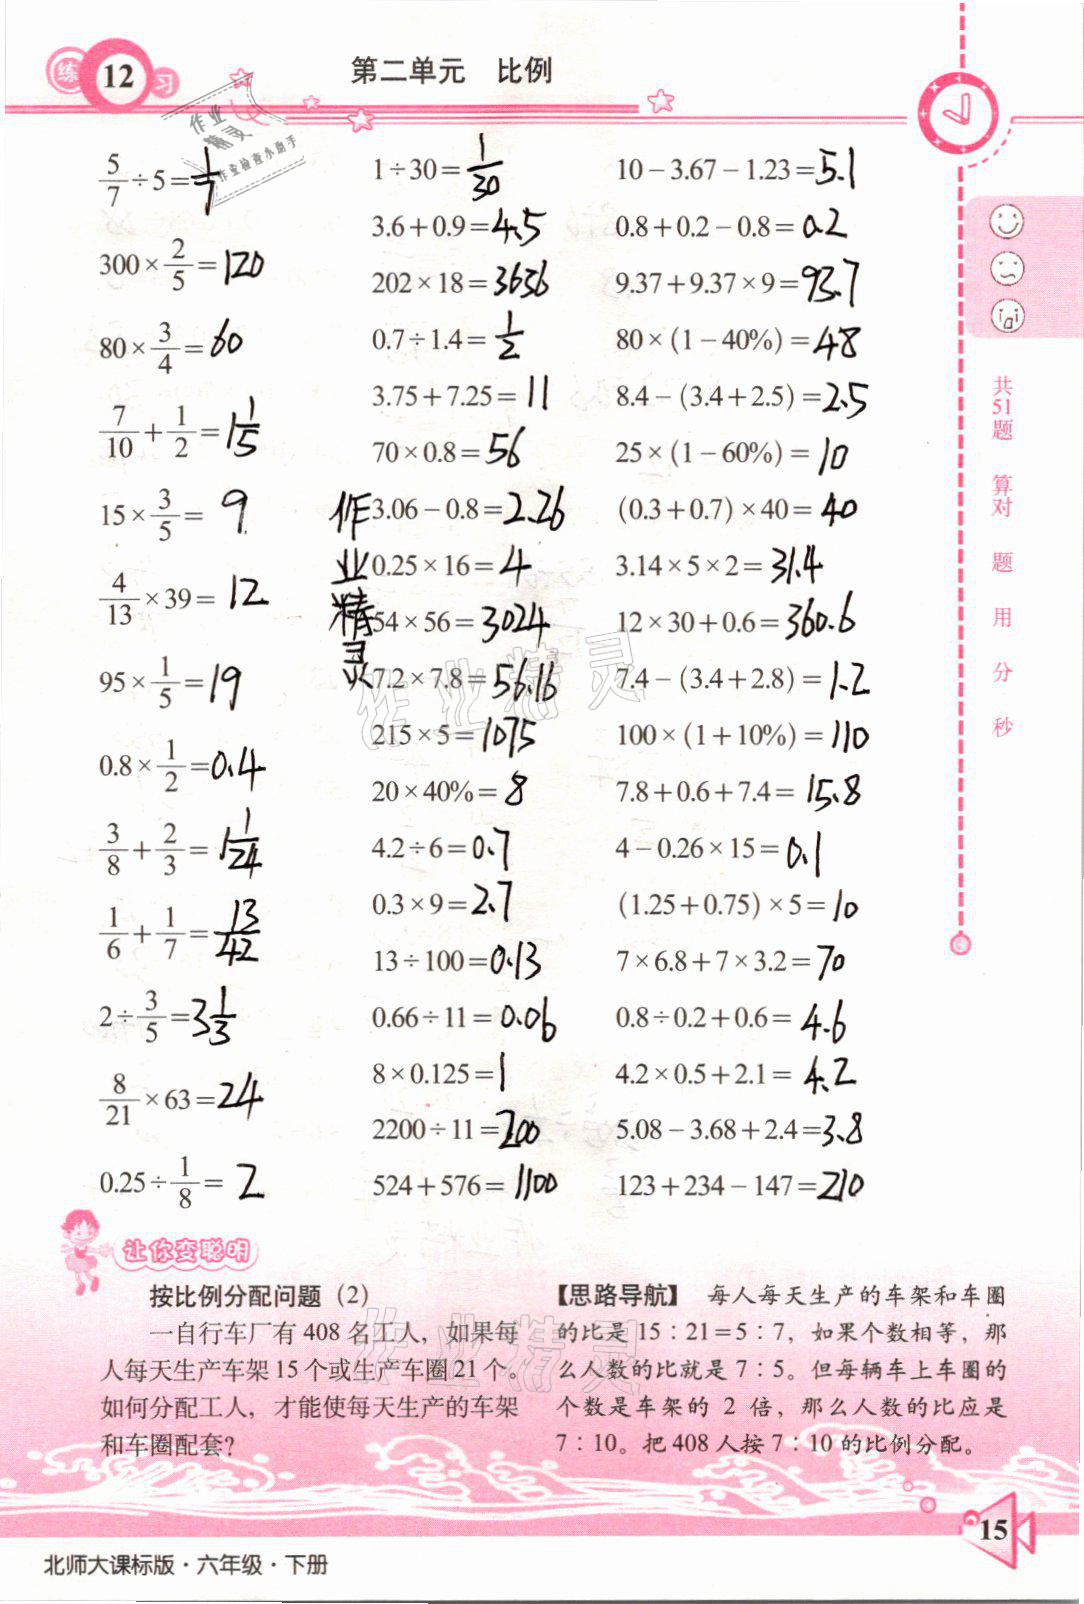 练 12 习
第二单元 比例
作业精灵
作业检查小助手
5/7÷5=1/7
300×2/5=120
80×3/4=60
7/10+1/2=1 1/5
15×3/5=9
4/13×39=12
95×1/5=19
0.8×1/2=0.4
3/8+2/3=1 1/24
1/6+1/7=13/42
2÷3/5=3 1/3
8/21×63=24
0.25÷1/8=2
1÷30=1/30
3.6+0.9=4.5
202×18=3636
0.7÷1.4=1/2
3.75+7.25=11
70×0.8=56
3.06-0.8=2.26
0.25×16=4
54×56=3024
7.2×7.8=56.16
215×5=1075
20×40%=8
4.2÷6=0.7
0.3×9=2.7
13÷100=0.13
0.66÷11=0.06
8×0.125=1
2200÷11=200
524+576=1100
作业精灵
10-3.67-1.23=5.1
0.8+0.2-0.8=0.2
9.37+9.37×9=93.7
80×(1-40%)=48
8.4-(3.4+2.5)=2.5
25×(1-60%)=10
(0.3+0.7)×40=40
3.14×5×2=31.4
12×30+0.6=360.6
7.4-(3.4+2.8)=1.2
100×(1+10%)=110
7.8+0.6+7.4=15.8
4-0.26×15=0.1
(1.25+0.75)×5=10
7×6.8+7×3.2=70
0.8÷0.2+0.6=4.6
4.2×0.5+2.1=4.2
5.08-3.68+2.4=3.8
123+234-147=210
共51题 算对 题 用 分 秒
作业精灵
让你变聪明
按比例分配问题(2)
一自行车厂有408名工人,如果每
人每天生产车架15个或生产车圈21个。
如何分配工人,才能使每天生产的车架
和车圈配套?
【思路导航】 每人每天生产的车架和车圈
的比是15∶21=5∶7,如果个数相等,那
么人数的比就是7∶5。但每辆车上车圈的
个数是车架的2倍,那么人数的比应是
7∶10。把408人按7∶10的比例分配。
作业精灵
15
北师大课标版·六年级·下册